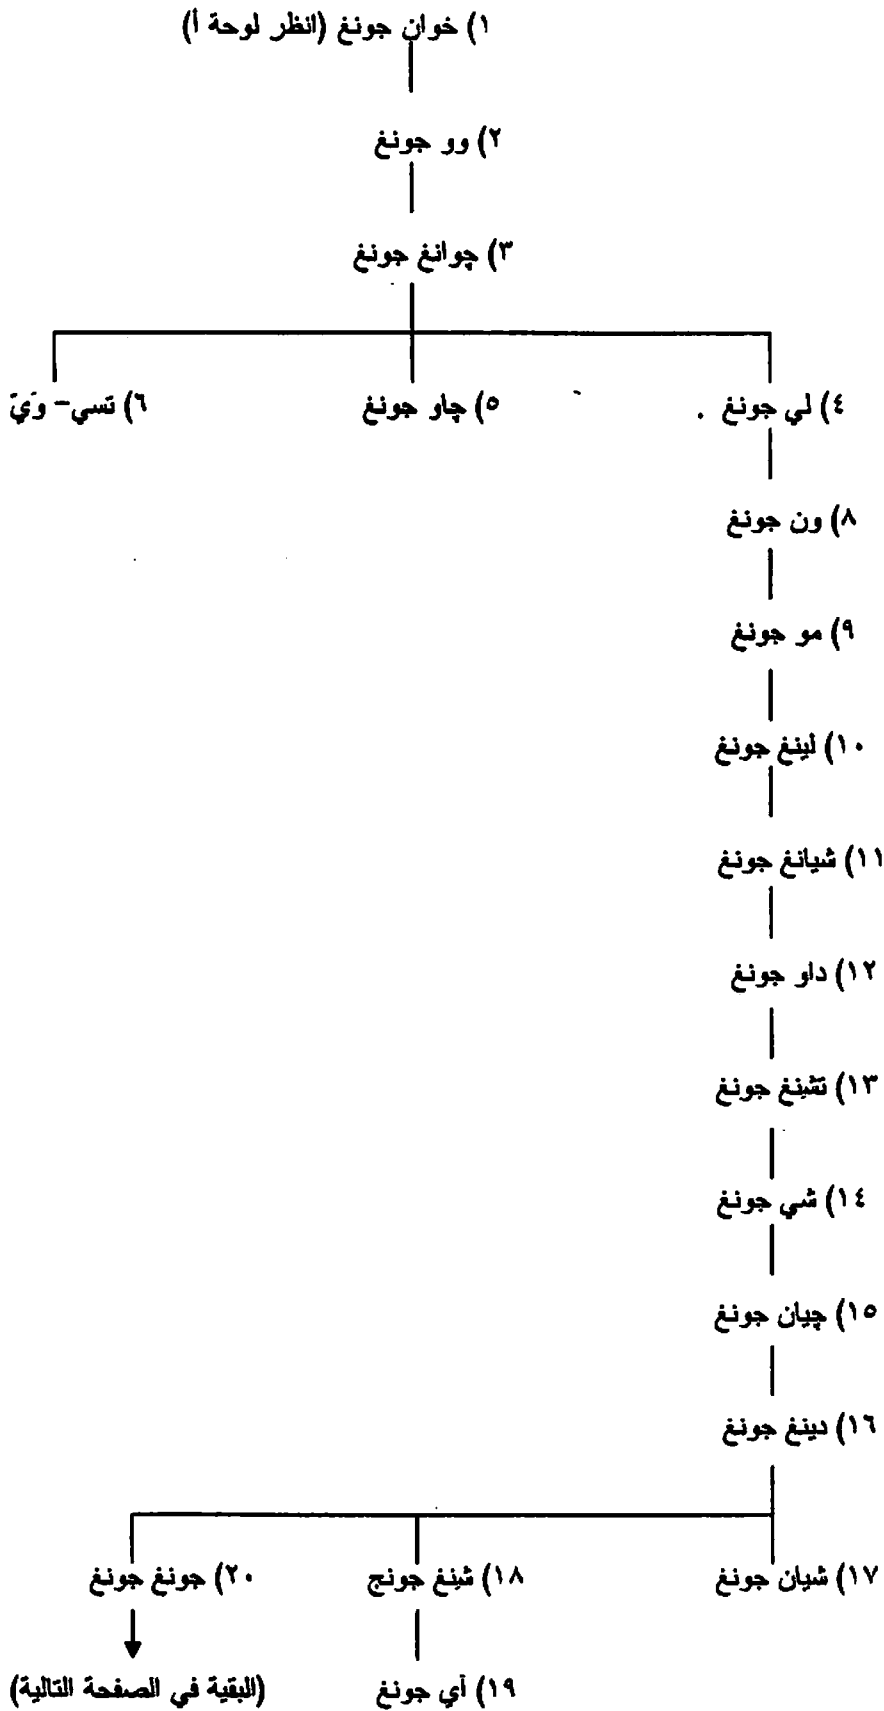 ١) خوان جونغ (انظر لوحة أ)
٢) وو جونغ
٣) چوانغ جونغ
٤) لي جونغ
٥) چاو جونغ
٦) تسي- وَيّ
٨) ون جونغ
٩) مو جونغ
١٠) لينغ جونغ
١١) شيانغ جونغ
١٢) داو جونغ
١٣) تشينغ جونغ
١٤) شي جونغ
١٥) چيان جونغ
١٦) دينغ جونغ
١٧) شيان جونغ
١٨) شينغ جونج
٢٠) جونغ جونغ
١٩) آي جونغ
(البقية في الصفحة التالية)